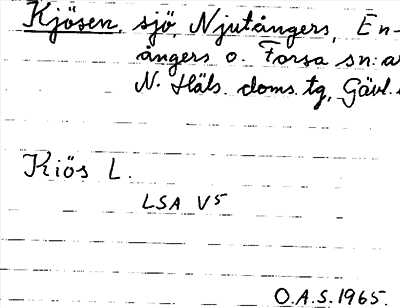 Kjösen, sjö, Njutångers, En-
ångers o. Forsa sn:a
N. Häls. doms. tg, Gävl.
Kiös L.
LSA V5
O.A.S. 1965.